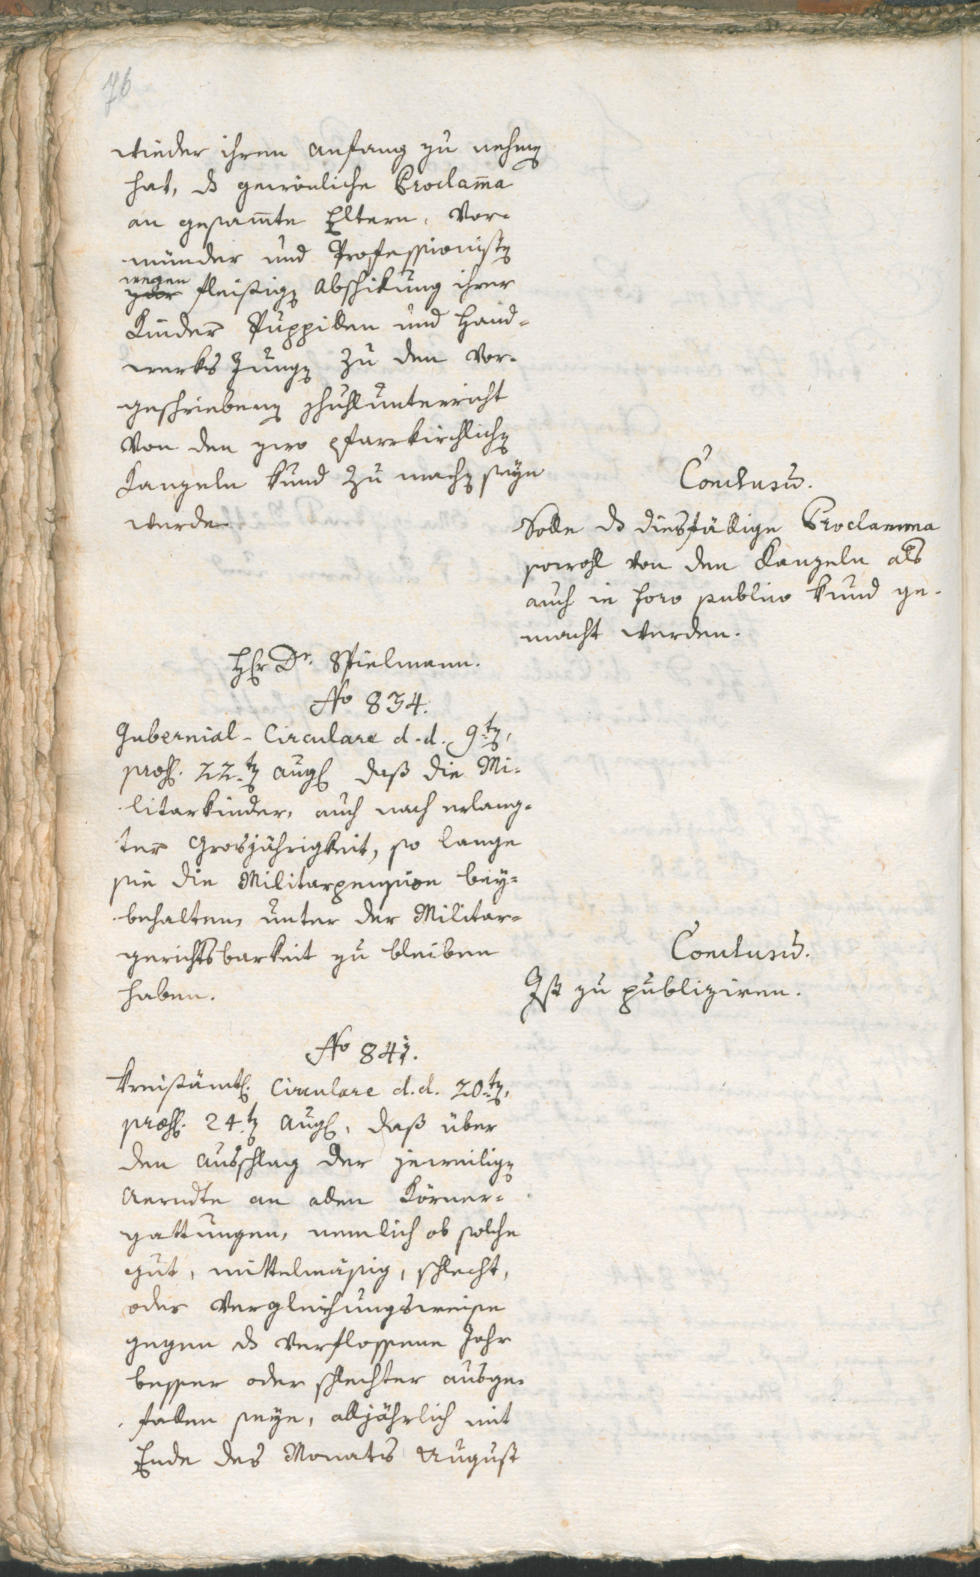 76
wieder ihren anfang zu nehmen
hat, ds gewönliche Proclam̄a
an gesam̄te Eltern, Vor-
münder und Professionisten
wegen
zur fleißigen Abschikung ihrer
Kinder Puppillen und Hand-
werks Jungen zu den Vor-
geschriebenen schuhlunterricht
Von den zwo pfarrkirchlichen
Kanzeln kund zu machen seyn
werde
Conclusū.
Solle ds diesfällige Proclamma
sowohl von den Kanzeln als
auch in foro publico kund ge-
macht werden.
HEr Dr. Spielmann.
No 834.
Gubernial-Circulare d.d. 9ten,
præs. 22ten Aug. daß die Mi-
litarkinder, auch nach erlang-
ter Grosjährigkeit, so lange
sie die Militarpension bey-
behalten, unter der Militar-
gerichtsbarkeit zu bleiben
haben.
Conclusū.
Ist zu publiziren.
No 841.
Kreisämtl. Circulare d.d. 20ten,
præs. 24ten Aug., daß über
den ausschlag der jeweiligen
Aerndte an allen Körner-
gattungen, nemlich ob solche
gut, mittelmäsig, schlecht,
oder Vergleichungsweise
gegen ds verflossene Jahr
besser oder schlechter ausge-
fallen seye, alljährlich mit
Ende des Monats August